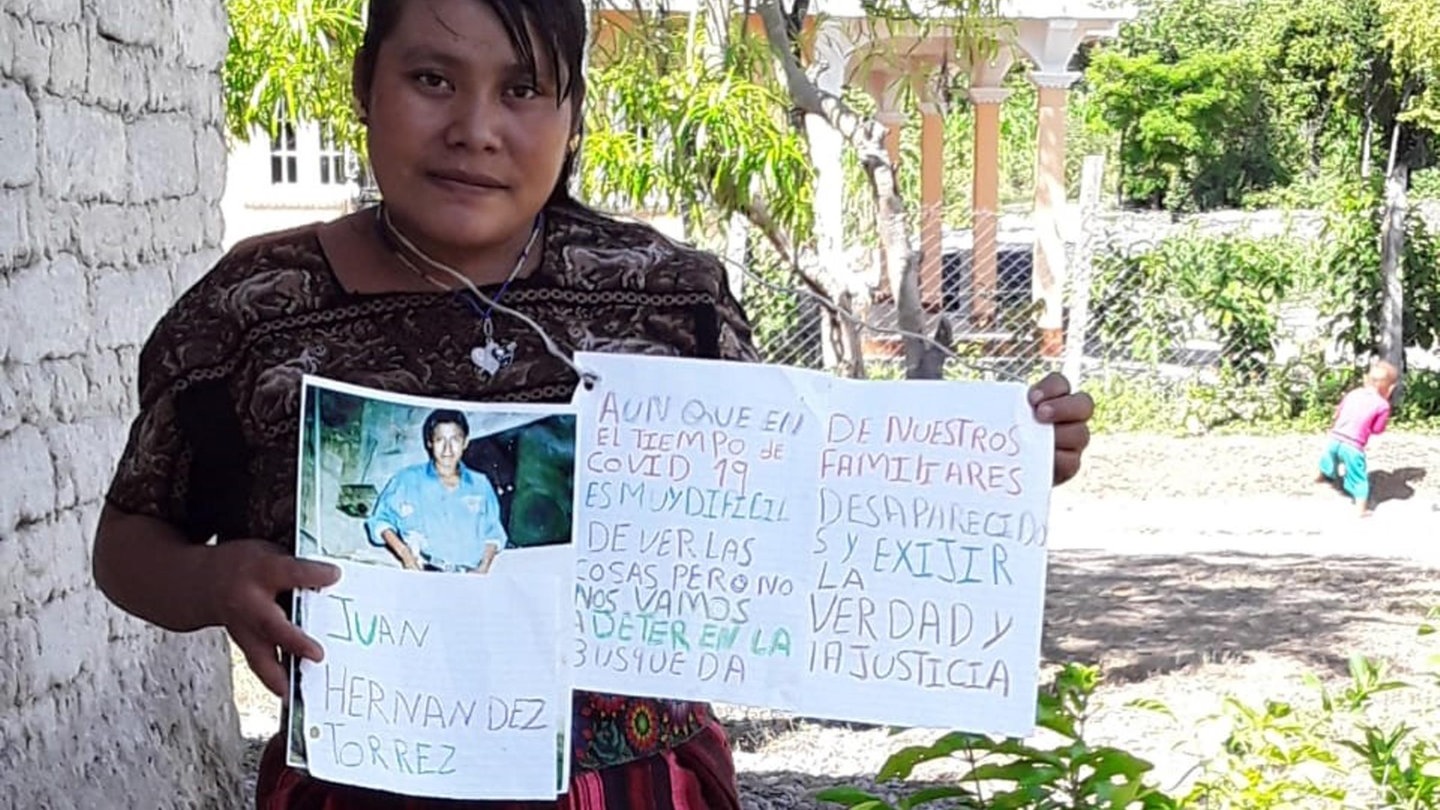 JUAN
HERNANDEZ
TORREZ
AUN QUE EN
EL TIEMPO de
COVID 19
ES MUY DIFICIL
DE VER LAS
COSAS PERO NO
NOS VAMOS
A DETER EN LA
BUSQUEDA
DE NUESTROS
FAMILIARES
DESAPARECIDO
S Y EXIJIR
LA
VERDAD Y
lA JUSTICIA